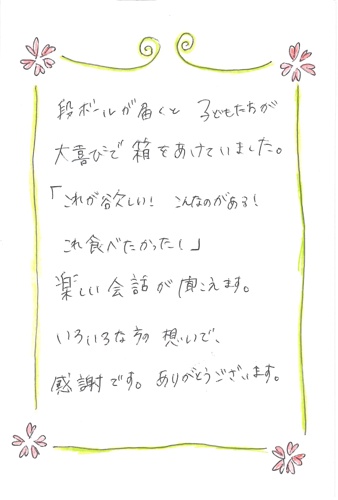 段ボールが届くと 子どもたちが
大喜びで箱をあけていました。
「これが欲しい! こんなのがある!
これ食べたかったし」
楽しい会話が聞こえます。
いろいろな方の想いで、
感謝です。ありがとうございます。